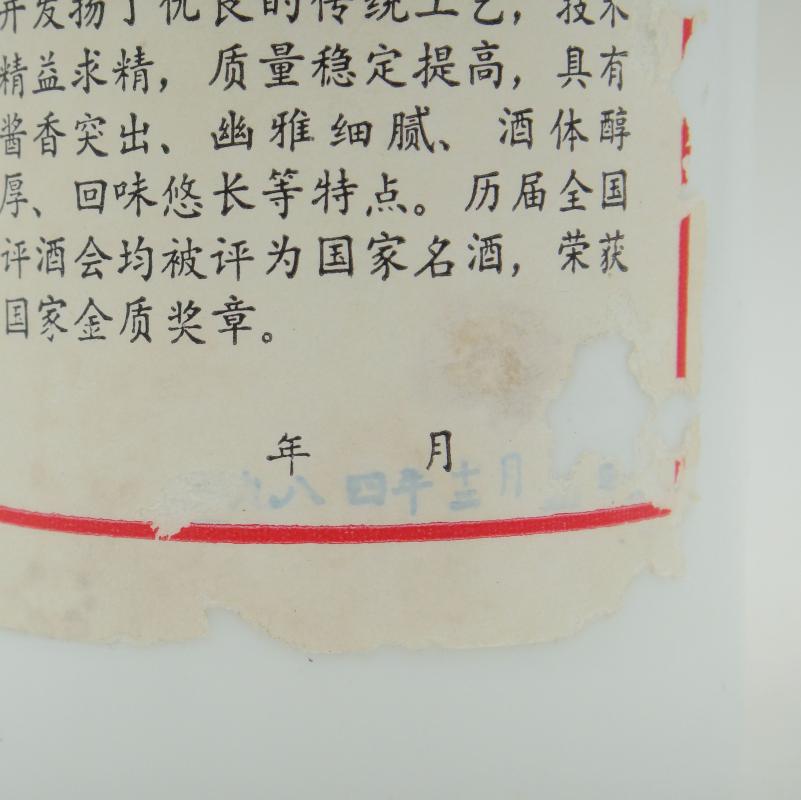 开发扬了优良的传统工艺，技术
精益求精，质量稳定提高，具有
酱香突出、幽雅细腻、酒体醇
厚、回味悠长等特点。历届全国
评酒会均被评为国家名酒，荣获
国家金质奖章。
年 月
九八四年十二月